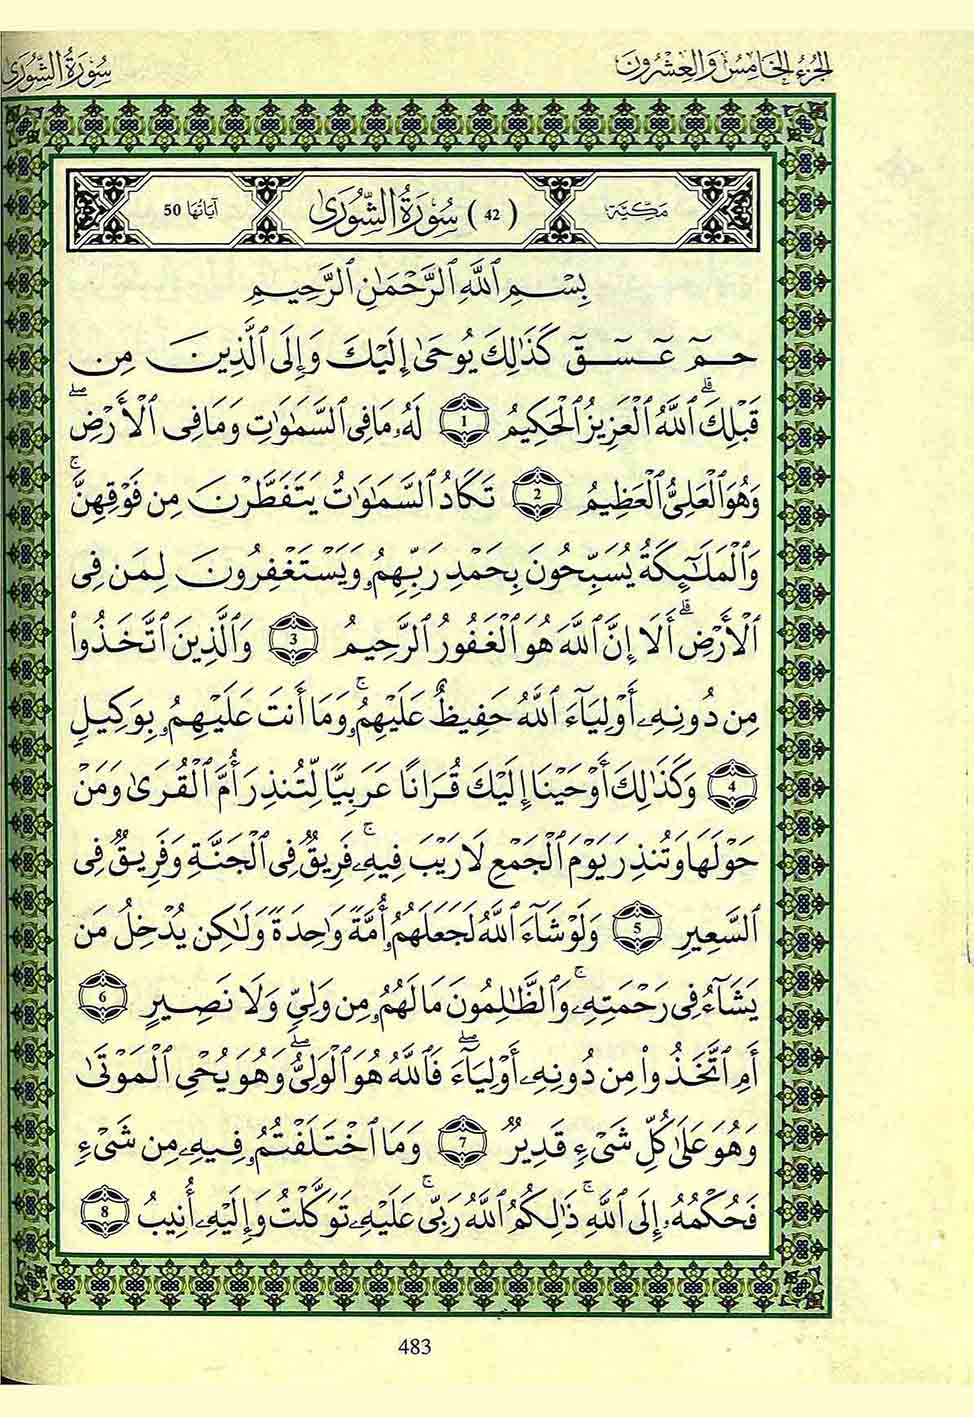 الجزء الخامس والعشرون
سورة الشورى
مكية
( 42 ) سُورَةُ الشُّورَىٰ
آياتها 50
بِسْمِ ٱللَّهِ ٱلرَّحْمَٰنِ ٱلرَّحِيمِ
حمٓ عٓسٓقٓ كَذَٰلِكَ يُوحَىٰ إِلَيْكَ وَإِلَى ٱلَّذِينَ مِن
قَبْلِكَۗ ٱللَّهُ ٱلْعَزِيزُ ٱلْحَكِيمُ 1 لَهُۥ مَا فِى ٱلسَّمَٰوَٰتِ وَمَا فِى ٱلْأَرْضِۖ
وَهُوَ ٱلْعَلِىُّ ٱلْعَظِيمُ 2 تَكَادُ ٱلسَّمَٰوَٰتُ يَتَفَطَّرْنَ مِن فَوْقِهِنَّۚ
وَٱلْمَلَٰٓئِكَةُ يُسَبِّحُونَ بِحَمْدِ رَبِّهِمُۥ وَيَسْتَغْفِرُونَ لِمَن فِى
ٱلْأَرْضِۗ أَلَا إِنَّ ٱللَّهَ هُوَ ٱلْغَفُورُ ٱلرَّحِيمُ 3 وَٱلَّذِينَ ٱتَّخَذُوا۟
مِن دُونِهِۦ أَوْلِيَآءَ ٱللَّهُ حَفِيظٌ عَلَيْهِمُۥۚ وَمَا أَنتَ عَلَيْهِمُۥ بِوَكِيلٍ
4 وَكَذَٰلِكَ أَوْحَيْنَا إِلَيْكَ قُرَانًا عَرَبِيًّا لِّتُنذِرَ أُمَّ ٱلْقُرَىٰ وَمَنْ
حَوْلَهَا وَتُنذِرَ يَوْمَ ٱلْجَمْعِ لَا رَيْبَ فِيهِۦۚ فَرِيقٌ فِى ٱلْجَنَّةِ وَفَرِيقٌ فِى
ٱلسَّعِيرِ 5 وَلَوْ شَآءَ ٱللَّهُ لَجَعَلَهُمُۥ أُمَّةً وَٰحِدَةً وَلَٰكِن يُدْخِلُ مَن
يَشَآءُ فِى رَحْمَتِهِۦۚ وَٱلظَّٰلِمُونَ مَا لَهُمُۥ مِن وَلِىٍّ وَلَا نَصِيرٍ 6
أَمِ ٱتَّخَذُوا۟ مِن دُونِهِۦ أَوْلِيَآءَۖ فَٱللَّهُ هُوَ ٱلْوَلِىُّۖ وَهُوَ يُحْىِ ٱلْمَوْتَىٰ
وَهُوَ عَلَىٰ كُلِّ شَىْءٍ قَدِيرٌ 7 وَمَا ٱخْتَلَفْتُمُۥ فِيهِۦ مِن شَىْءٍ
فَحُكْمُهُۥ إِلَى ٱللَّهِۚ ذَٰلِكُمُ ٱللَّهُ رَبِّىۚ عَلَيْهِۦ تَوَكَّلْتُ وَإِلَيْهِۦ أُنِيبُ 8
483